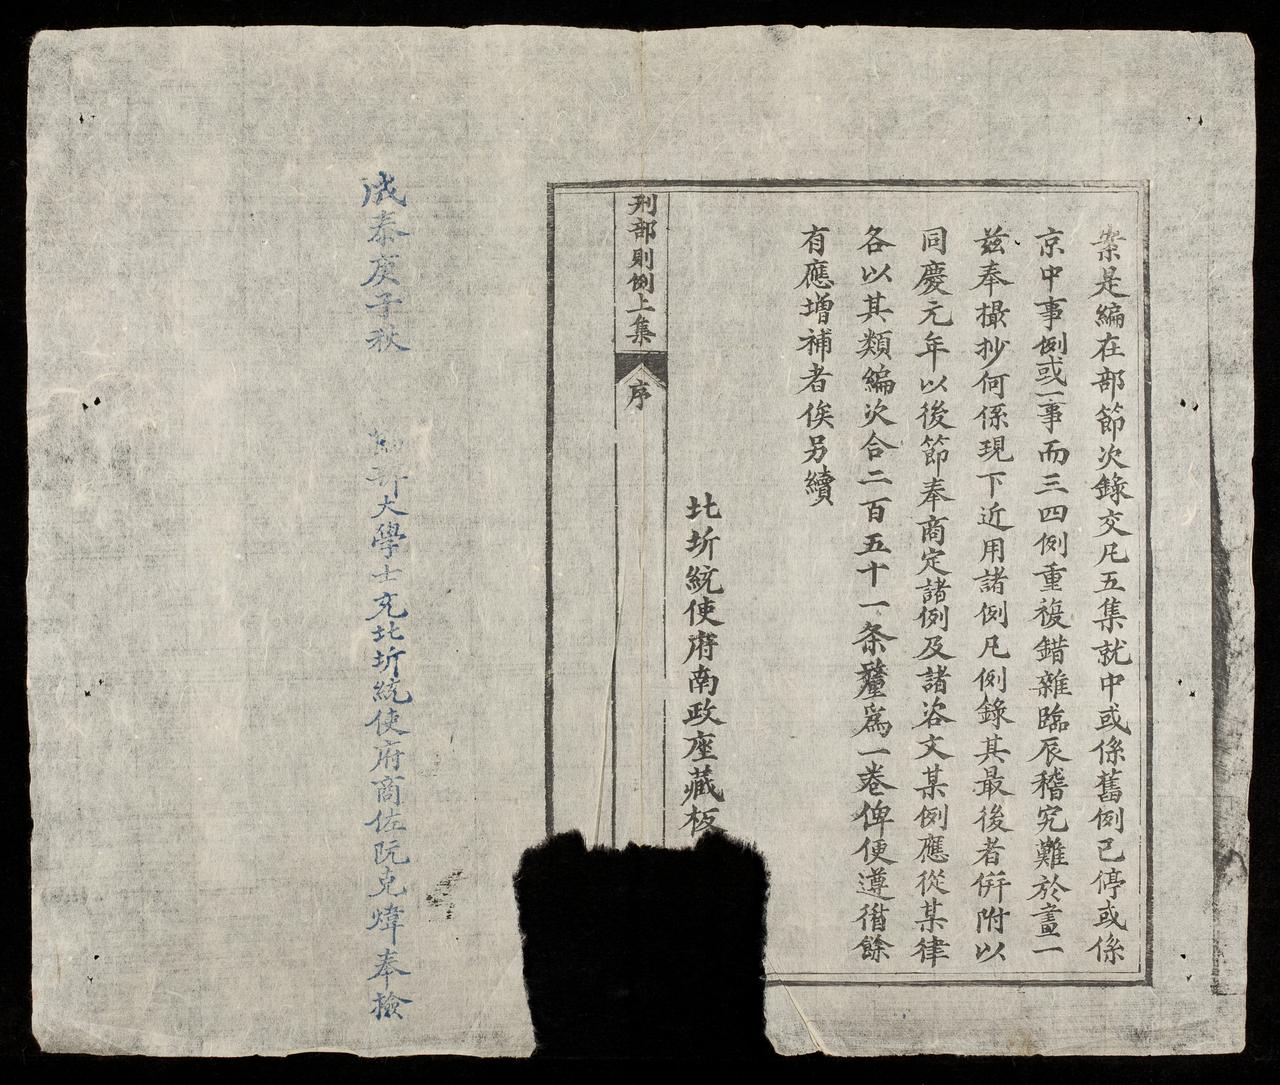 案是編在部節次錄交凡五集就中或係舊例已停或係
京中事例或一事而三四例重複錯雜臨辰稽究難於畫一
茲奉撮抄何係現下近用諸例凡例錄其最後者併附以
同慶元年以後節奉商定諸例及諸咨文某例應從某律
各以其類編次合二百五十一条釐爲一卷俾便遵循餘
有應增補者俟另續
北圻統使府南政座藏板
刑部則例上集
序
成泰庚子秋
大學士充北圻統使府商佐阮克煒奉檢